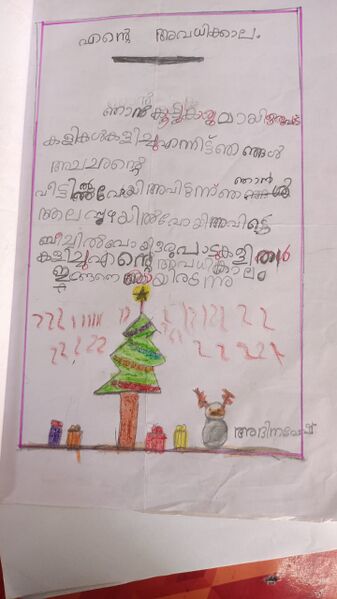 എന്റെ അവധിക്കാല.
ഞാൻ കൂട്ടുകാരുമായി ഒരുപാട്
കളികൾ കളിച്ചു എന്നിട്ട് ഞങ്ങൾ
അച്ചാന്റെ
വീട്ടിൽ പോയി അവിടുന്ന് ഞാൻ
ആലപ്പുഴയിൽ പോയി അവിടെ
ബീച്ചിൽ പോയി ഒരുപാടു കളി
കളിച്ചു എന്റെ അവധിക്കാലം
ഇങ്ങനെ ആയിരുന്നു